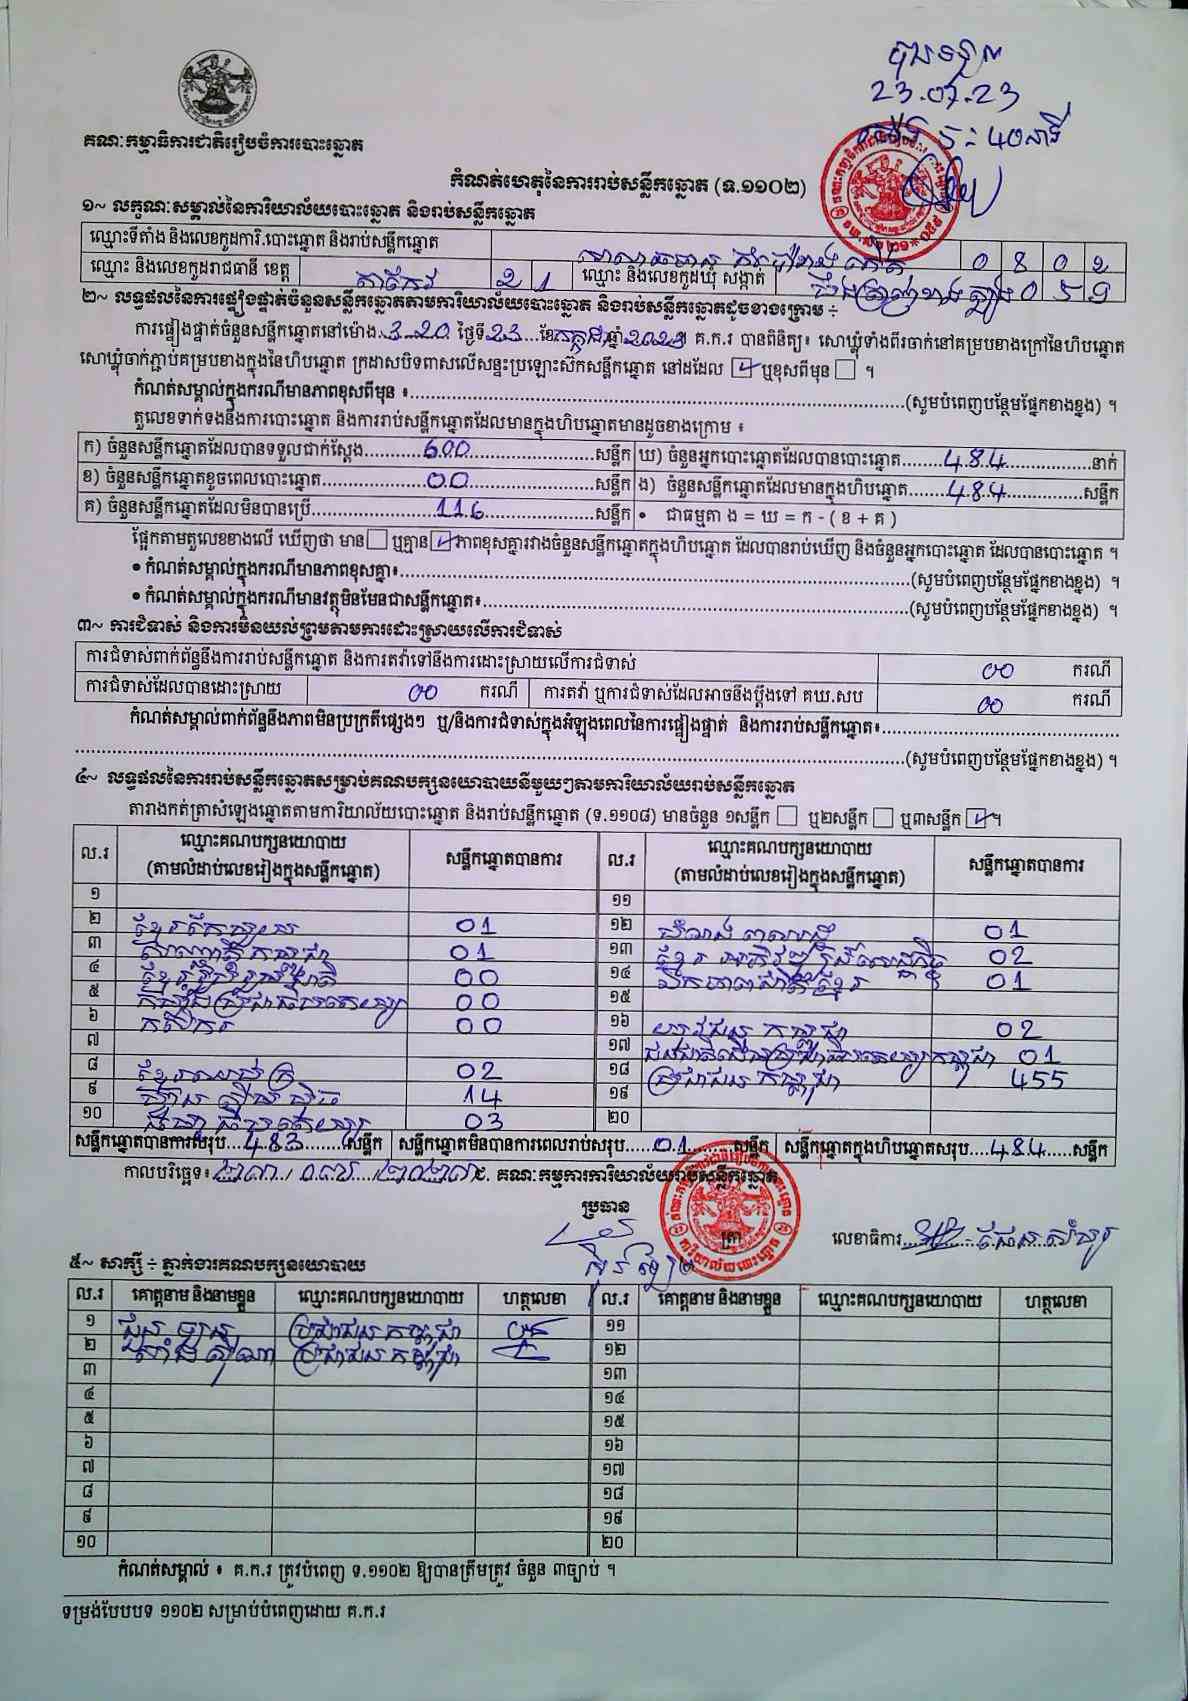 23.07.23
5: 40នាទី
គណៈកម្មាធិការជាតិរៀបចំការបោះឆ្នោត
កំណត់ហេតុនៃការរាប់សន្លឹកឆ្នោត (ទ.១១០២)
១~ លក្ខណៈសម្គាល់នៃការិយាល័យបោះឆ្នោត និងរាប់សន្លឹកឆ្នោត
ឈ្មោះទីតាំង និងលេខកូដការិ.បោះឆ្នោត និងរាប់សន្លឹកឆ្នោត 0 8 0 2
ឈ្មោះ និងលេខកូដរាជធានី ខេត្ត តាកែវ 2 1 ឈ្មោះ និងលេខកូដឃុំ សង្កាត់ 0 5 9
២~ លទ្ធផលនៃការផ្ទៀងផ្ទាត់ចំនួនសន្លឹកឆ្នោតតាមការិយាល័យបោះឆ្នោត និងរាប់សន្លឹកឆ្នោតដូចខាងក្រោម ÷
ការផ្ទៀងផ្ទាត់ចំនួនសន្លឹកឆ្នោតនៅម៉ោង 3.20 ថ្ងៃទី 23 ខែ កក្កដា ឆ្នាំ 2023 គ.ក.រ បានពិនិត្យ៖ សោឃ្លុំទាំងពីរចាក់នៅគម្របខាងក្រៅនៃហិបឆ្នោត
សោឃ្លុំចាក់ភ្ជាប់គម្របខាងក្នុងនៃហិបឆ្នោត ក្រដាសបិទពាសលើសន្ទះប្រឡោះស៊កសន្លឹកឆ្នោត នៅដដែល ☑ ឬខុសពីមុន ☐ ។
កំណត់សម្គាល់ក្នុងករណីមានភាពខុសពីមុន ៖ (សូមបំពេញបន្ថែមផ្នែកខាងខ្នង) ។
តួលេខទាក់ទងនឹងការបោះឆ្នោត និងការរាប់សន្លឹកឆ្នោតដែលមានក្នុងហិបឆ្នោតមានដូចខាងក្រោម ៖
ក) ចំនួនសន្លឹកឆ្នោតដែលបានទទួលជាក់ស្តែង 600 សន្លឹក ឃ) ចំនួនអ្នកបោះឆ្នោតដែលបានបោះឆ្នោត 484 នាក់
ខ) ចំនួនសន្លឹកឆ្នោតខូចពេលបោះឆ្នោត 00 សន្លឹក ង) ចំនួនសន្លឹកឆ្នោតដែលមានក្នុងហិបឆ្នោត 484 សន្លឹក
គ) ចំនួនសន្លឹកឆ្នោតដែលមិនបានប្រើ 116 សន្លឹក • ជាធម្មតា ង = ឃ = ក - ( ខ + គ )
ផ្អែកតាមតួលេខខាងលើ ឃើញថា មាន ☐ ឬគ្មាន ☑ ភាពខុសគ្នារវាងចំនួនសន្លឹកឆ្នោតក្នុងហិបឆ្នោត ដែលបានរាប់ឃើញ និងចំនួនអ្នកបោះឆ្នោត ដែលបានបោះឆ្នោត ។
• កំណត់សម្គាល់ក្នុងករណីមានភាពខុសគ្នា៖ (សូមបំពេញបន្ថែមផ្នែកខាងខ្នង) ។
• កំណត់សម្គាល់ក្នុងករណីមានវត្ថុមិនមែនជាសន្លឹកឆ្នោត៖ (សូមបំពេញបន្ថែមផ្នែកខាងខ្នង) ។
៣~ ការជំទាស់ និងការមិនយល់ព្រមតាមការដោះស្រាយលើការជំទាស់
ការជំទាស់ពាក់ព័ន្ធនឹងការរាប់សន្លឹកឆ្នោត និងការតវ៉ាទៅនឹងការដោះស្រាយលើការជំទាស់ 00 ករណី
ការជំទាស់ដែលបានដោះស្រាយ 00 ករណី ការតវ៉ា ឬការជំទាស់ដែលអាចនឹងប្តឹងទៅ គឃ.សប 00 ករណី
កំណត់សម្គាល់ពាក់ព័ន្ធនឹងភាពមិនប្រក្រតីផ្សេងៗ ឬ/និងការជំទាស់ក្នុងអំឡុងពេលនៃការផ្ទៀងផ្ទាត់ និងការរាប់សន្លឹកឆ្នោត៖
(សូមបំពេញបន្ថែមផ្នែកខាងខ្នង) ។
៤~ លទ្ធផលនៃការរាប់សន្លឹកឆ្នោតសម្រាប់គណបក្សនយោបាយនីមួយៗតាមការិយាល័យរាប់សន្លឹកឆ្នោត
តារាងកត់ត្រាសំឡេងឆ្នោតតាមការិយាល័យបោះឆ្នោត និងរាប់សន្លឹកឆ្នោត (ទ.១១០៨) មានចំនួន ១សន្លឹក ☐ ឬ២សន្លឹក ☐ ឬ៣សន្លឹក ☑ ។
ល.រ ឈ្មោះគណបក្សនយោបាយ (តាមលំដាប់លេខរៀងក្នុងសន្លឹកឆ្នោត) សន្លឹកឆ្នោតបានការ ល.រ ឈ្មោះគណបក្សនយោបាយ (តាមលំដាប់លេខរៀងក្នុងសន្លឹកឆ្នោត) សន្លឹកឆ្នោតបានការ
១ ១១
២ 01 ១២ 01
៣ 01 ១៣ ខ្មែរអភិវឌ្ឍន៍សេដ្ឋកិច្ច 02
៤ 00 ១៤ ឯកភាពជាតិខ្មែរ 01
៥ 00 ១៥
៦ កសិករ 00 ១៦ យុវជនកម្ពុជា 02
៧ ១៧ 01
៨ 02 ១៨ ប្រជាជនកម្ពុជា 455
៩ ហ៊្វុនស៊ិនប៉ិច 14 ១៩
១០ 03 ២០
សន្លឹកឆ្នោតបានការសរុប 483 សន្លឹក សន្លឹកឆ្នោតមិនបានការពេលរាប់សរុប 01 សន្លឹក សន្លឹកឆ្នោតក្នុងហិបឆ្នោតសរុប 484 សន្លឹក
កាលបរិច្ឆេទ៖ ២៣ / ០៧ / ២០២៣ គណៈកម្មការការិយាល័យរាប់សន្លឹកឆ្នោត
ប្រធាន
ត្រា លេខាធិការ
៥~ សាក្សី ÷ ភ្នាក់ងារគណបក្សនយោបាយ
ល.រ គោត្តនាម និងនាមខ្លួន ឈ្មោះគណបក្សនយោបាយ ហត្ថលេខា ល.រ គោត្តនាម និងនាមខ្លួន ឈ្មោះគណបក្សនយោបាយ ហត្ថលេខា
១ ប្រជាជនកម្ពុជា ១១
២ ប្រជាជនកម្ពុជា ១២
៣ ១៣
៤ ១៤
៥ ១៥
៦ ១៦
៧ ១៧
៨ ១៨
៩ ១៩
១០ ២០
កំណត់សម្គាល់ ៖ គ.ក.រ ត្រូវបំពេញ ទ.១១០២ ឱ្យបានត្រឹមត្រូវ ចំនួន ៣ច្បាប់ ។
ទម្រង់បែបបទ ១១០២ សម្រាប់បំពេញដោយ គ.ក.រ